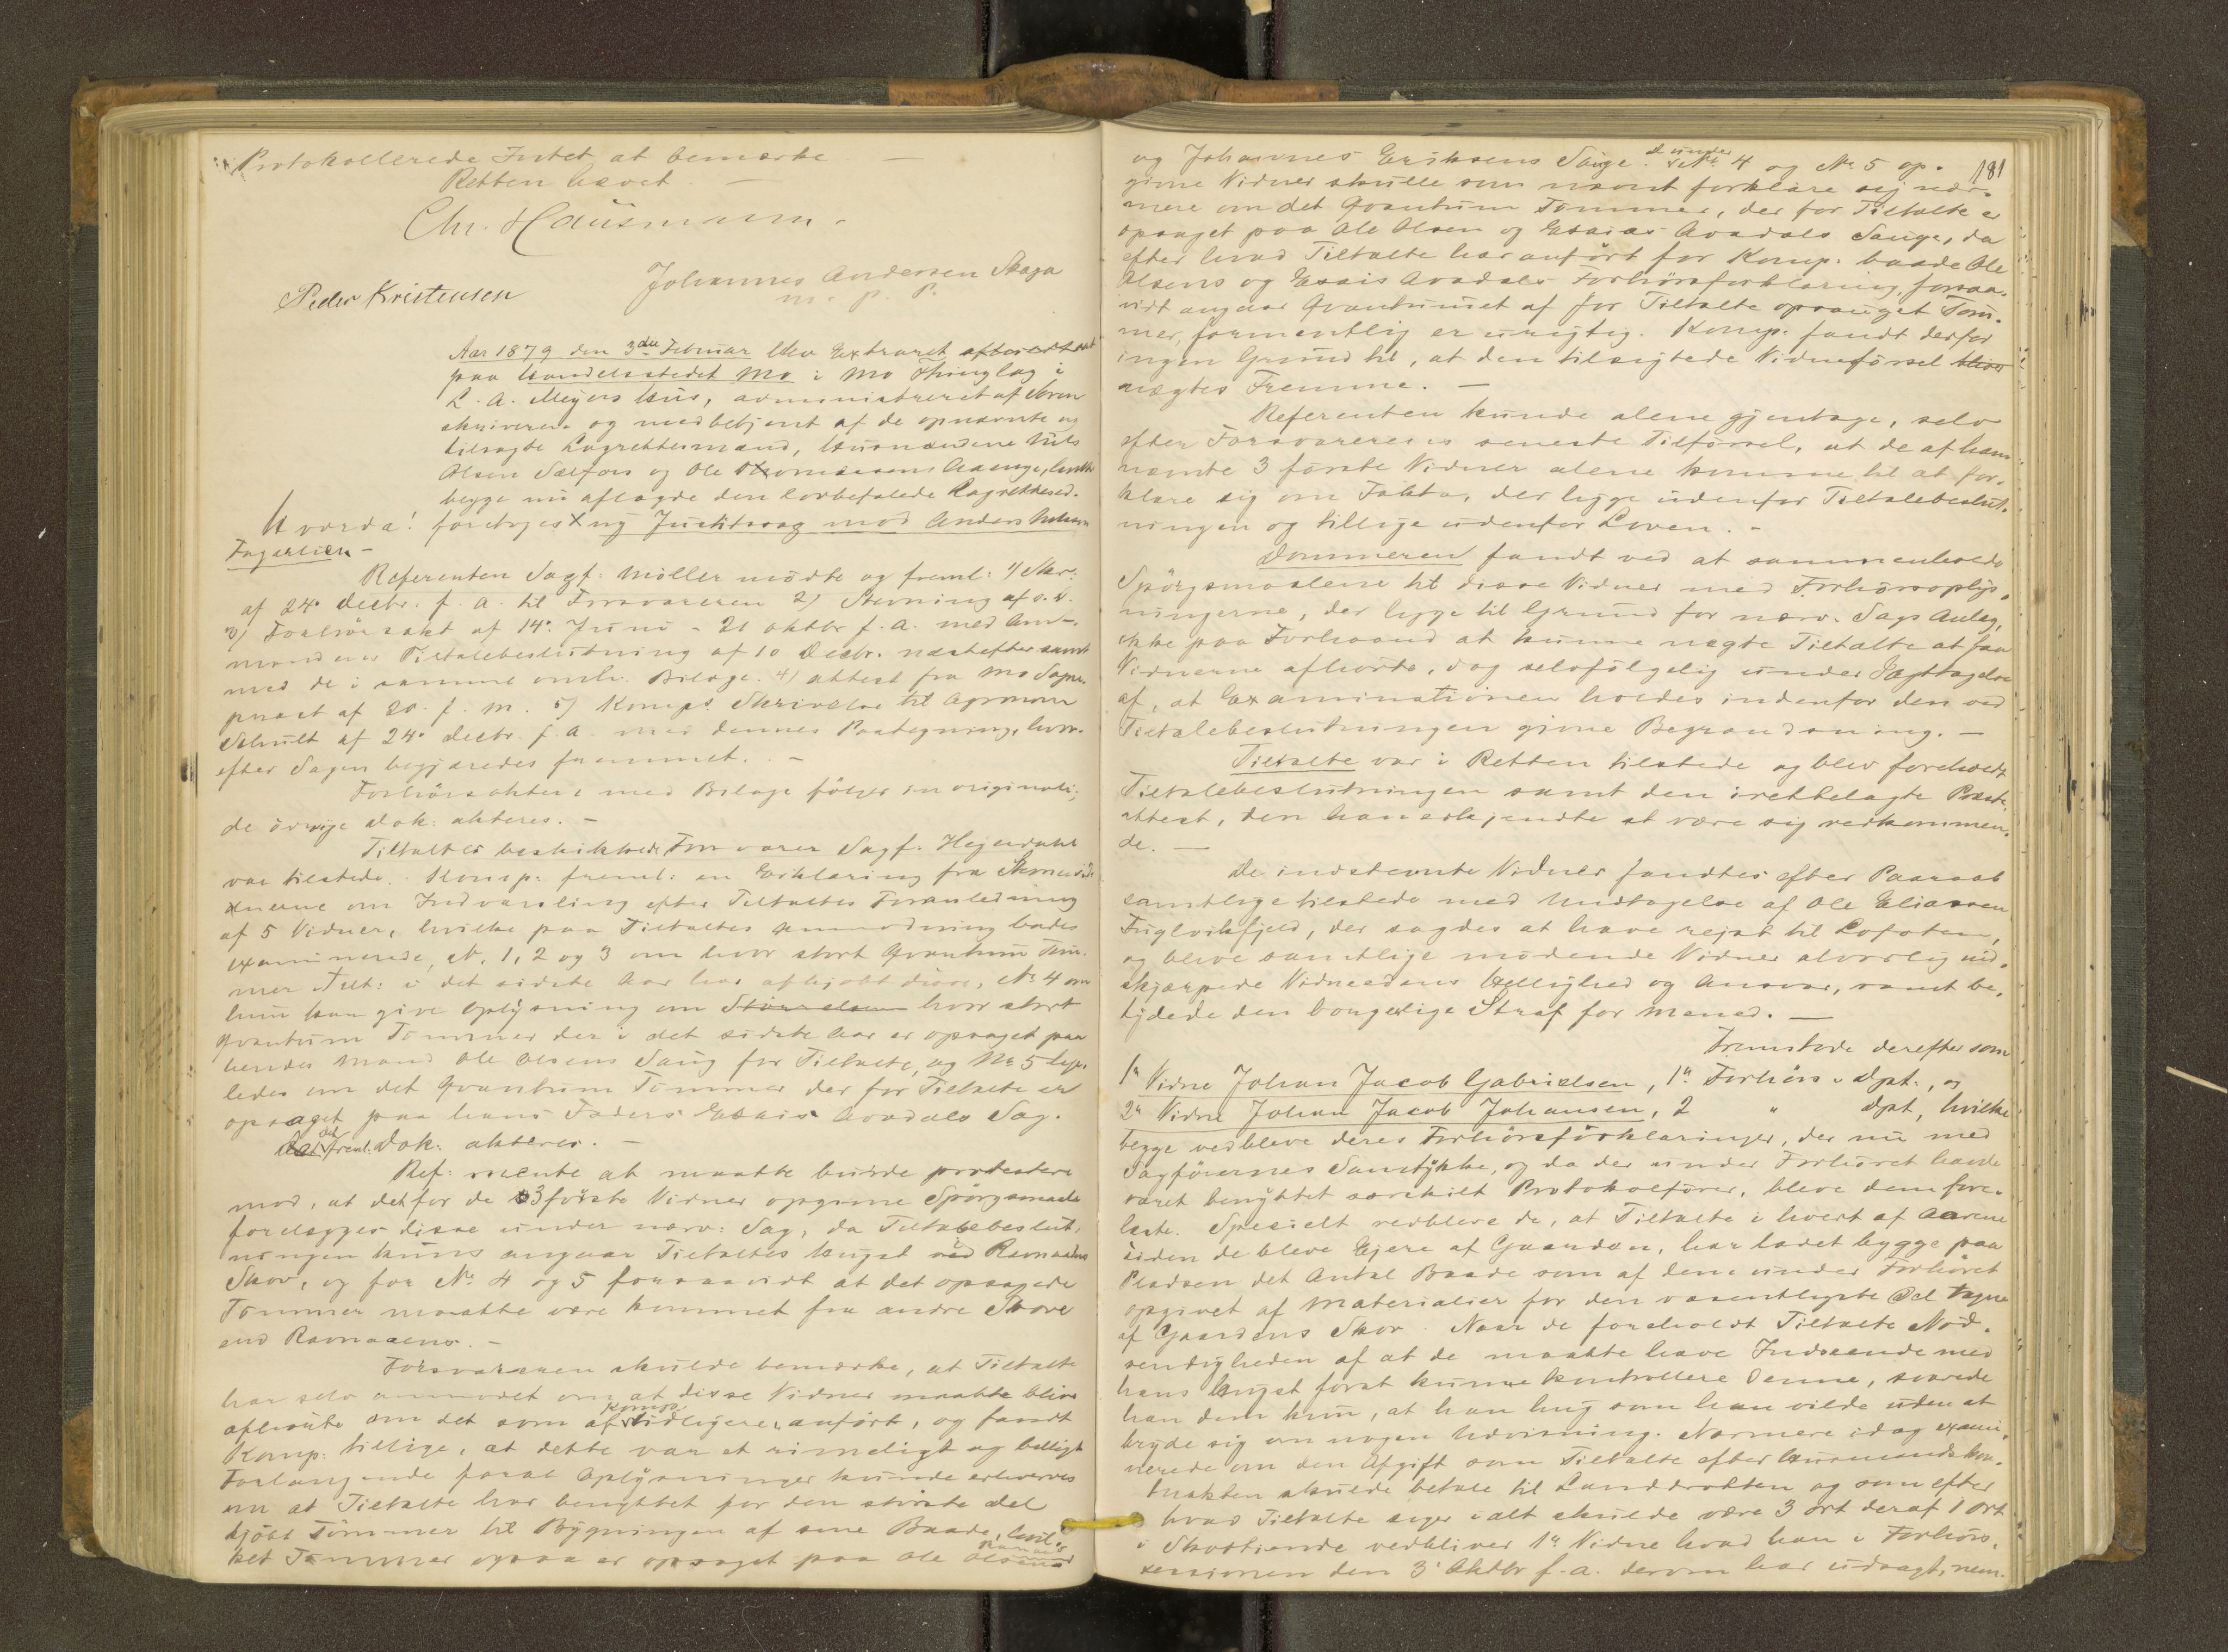 Protokollerede Intet at bemærke —
Retten hævet. —
Chr. Hausmann.
Johannes Andersen Skaga
m. p. P.
Peder Kristensen
Aar 1879 den 3die Februar blev Extraret
paa Handelsstedet Mo i Mo Thinglag i
L. A. Meyers Hus, administreret af Soren-
skriveren og medbetjent af de opnævnte og
tilsagte Lagrettesmænd, Husmændene Nils
Olsen Selfors og Ole Thomassens, hvilke
begge nu aflagde den lovbefalede Lagrettesed.
Hvorda! foretoges ny Justitssag mod Anders
Fagerlien —
Referenten Sagf. Møller mødte og freml: 1) Skr.
af 24. Decbr. f. A. til Forsvareren 2) Stevning af s. D.
3) Forhørsakt af 14. Juni - 21 Oktbr f. A. med Amt-
mandens Tiltalebeslutning af 10 Decbr. næstefter samt
med de i samme omh. Bilage. 4) Attest fra Mo Sogne-
præst af 20. f. M. 5) Komps. Skrivelse til Agronom
Schult af 24. Decbr. f. A. med dennes Paategning, hvor-
efter Sagen begjæredes fremmet. —
Forhørsakten med Bilage følger in originali;
de øvrige Dok. akteres. —
Tiltaltes beskikkede Forsvarer Sagf. Hejerdahl
var tilstede. Komp. freml: en Erklæring fra Stevnevid-
nerne om Indvarsling efter Tiltaltes Foranledning
af 5 Vidner, hvilke paa Tiltaltes Anmodning bades
examinerede, No. 1, 2 og 3 om hvor stort Qvantum Tøm-
mer Tilt: i det sidste Aar har afkjøbt disse, No 4 om
hun kan give Oplysning om Størrelsen hvor stort
Qvantum Tømmer der i det sidste Aar er opsaget paa
hendes Mand Ole Olsens Saug for Tiltalte, og No 5 lige-
ledes om det Qvantum Tømmer der for Tiltalte er
opsaget paa hans Faders Esais Avadals Sag.
Det freml. Dok. akteres. —
Ref: mente at maatte burde protestere
mod, at det for de 3 første Vidner opgivne Spørgsmaal
forelægges disse under nærv: Sag, da Tiltalebeslut-
ningen kuns angaar Tiltaltes Hugst i Ravnaaens
Skov, og for No. 4 og 5 forsaavidt at det opsagede
Tømmer maatte være kommet fra andre Skove
end Ravnaaens. —
Forsvareren skulde bemærke, at Tiltalte
har selv anmodet om, at disse Vidner maatte blive
afhørte om det som af Komp. tidligere anført, og fandt
Komp. tillige, at dette var et rimeligt og billigt
Forlangende forat Oplysninger kunde erhverves
om at Tiltalte har benyttet for den største Del
kjøbt Tømmer til Bygningen af sine Baade, hvil-
ket Tømmer ogsaa er opsaget paa Ole Olsens
181
og Johannes Eriksens Sauge. De under No. 4 og No 5 op-
givne Vidner skulle som nævnt forklare sig nær-
mere om det Qvantum Tømmer, der for Tiltalte er
opsaget paa Ole Olsen og Esaias Avadals Sauge, da
efter hvad Tiltalte har anført for Komp. baade Ole
Olsens og Esais Avadals Forhørsforklaring, forsaa-
vidt angaar Qvantumet af for Tiltalte opsauget Tøm-
mer, formentlig er urigtig. Komp. fandt derfor
ingen Grund til, at den tilsigtede Vidneførsel blive
nægtes Fremme. —
Referenten kunde alene gjentage, selv
efter Forsvarerens seneste Tilførsel, at de af ham
nævnte 3 første Vidner alene komme til at for-
klare sig om Fakta, der ligge udenfor Tiltalebeslut-
ningen og tillige udenfor Loven. —
Dommeren fandt ved at sammenholde
Spørgsmaalene til disse Vidner med Forhørsoplys-
ningerne, der ligge til Grund for nærv. Sags Anlæg,
ikke paa Forhaand at kunne nægte Tiltalte at faa
Vidnerne afhørte, dog selvfølgelig under Iagttagelse
af, at Examinationen holdes indenfor den ved
Tiltalebeslutningen givne Begrændsning. —
Tiltalte var i Retten tilstede og blev foreholdt
Tiltalebeslutningen samt den irettelagte Præste-
attest, den han erkjendte at være sig vedkommen-
de. —
De indstevnte Vidner fandtes efter Paaraab
samtlige tilstede med Undtagelse af Ole Eliassen
Fuglvikfjeld, der sagdes at have rejst til Lofoten,
og bleve samtlige mødende Vidner alvorlig ind-
skjærpede Vidneedens Hellighed og Ansvar, samt be-
tydede den borgerlige Straf for Mened. —
Fremstode derefter som
1e Vidne Johan Jacob Gabrielsen, 1e Forhørs-Dpt., og
2e Vidne Johan Jacob Johansen, 2 " Dpt, hvilke
begge vedbleve deres Forhørsforklaringer, der nu med
Sagførernes Samtykke, og da der under Forhøret havde
været benyttet særskilt Protokolfører, bleve dem fore-
læste. Specielt vedbleve de, at Tiltalte i hvert af Aarene
siden de bleve Ejere af Gaarden, har ladet bygge paa
Pladsen det Antal Baade som af dem under Forhøret
opgivet af Materialier for den væsentligste Del tagne
af Gaardens Skov. Naar de foreholdt Tiltalte Nød-
vendigheden af at de maatte have Indseende med
hans Hugst forat kunne kontrollere denne, svarede
han dem kun, at han hug som han vilde uden at
bryde sig om nogen Udvisning. Nærmere idag exami-
nerede om den Afgift som Tiltalte efter Husmandskon-
trakten skulde betale til Landdrotten og som efter
hvad Tiltalte siger ialt skulde være 3 Ort deraf 1 Ort
i Skovtiende vedbliver 1e Vidne hvad han i Forhørs-
sessionen den 3 Oktbr f. A. derom har udsagt, nem-